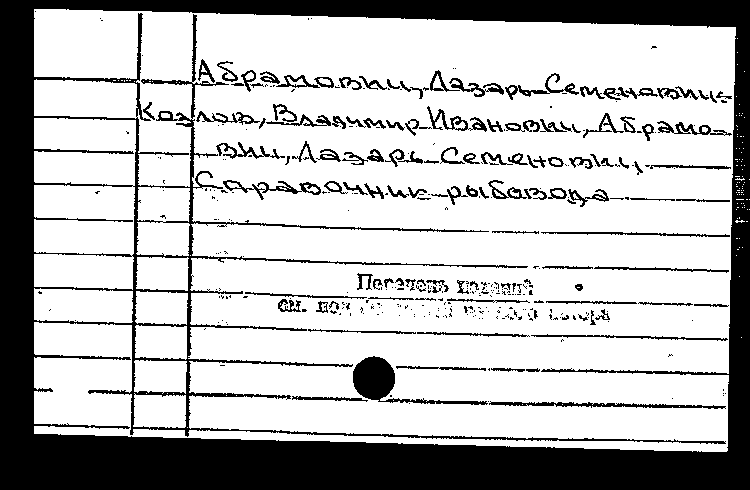 Абрамович, Лазарь Семенович
Козлов, Владимир Иванович, Абрамо-
вич, Лазарь Семенович.
Справочник рыбовода
Перечень изданий
см. под